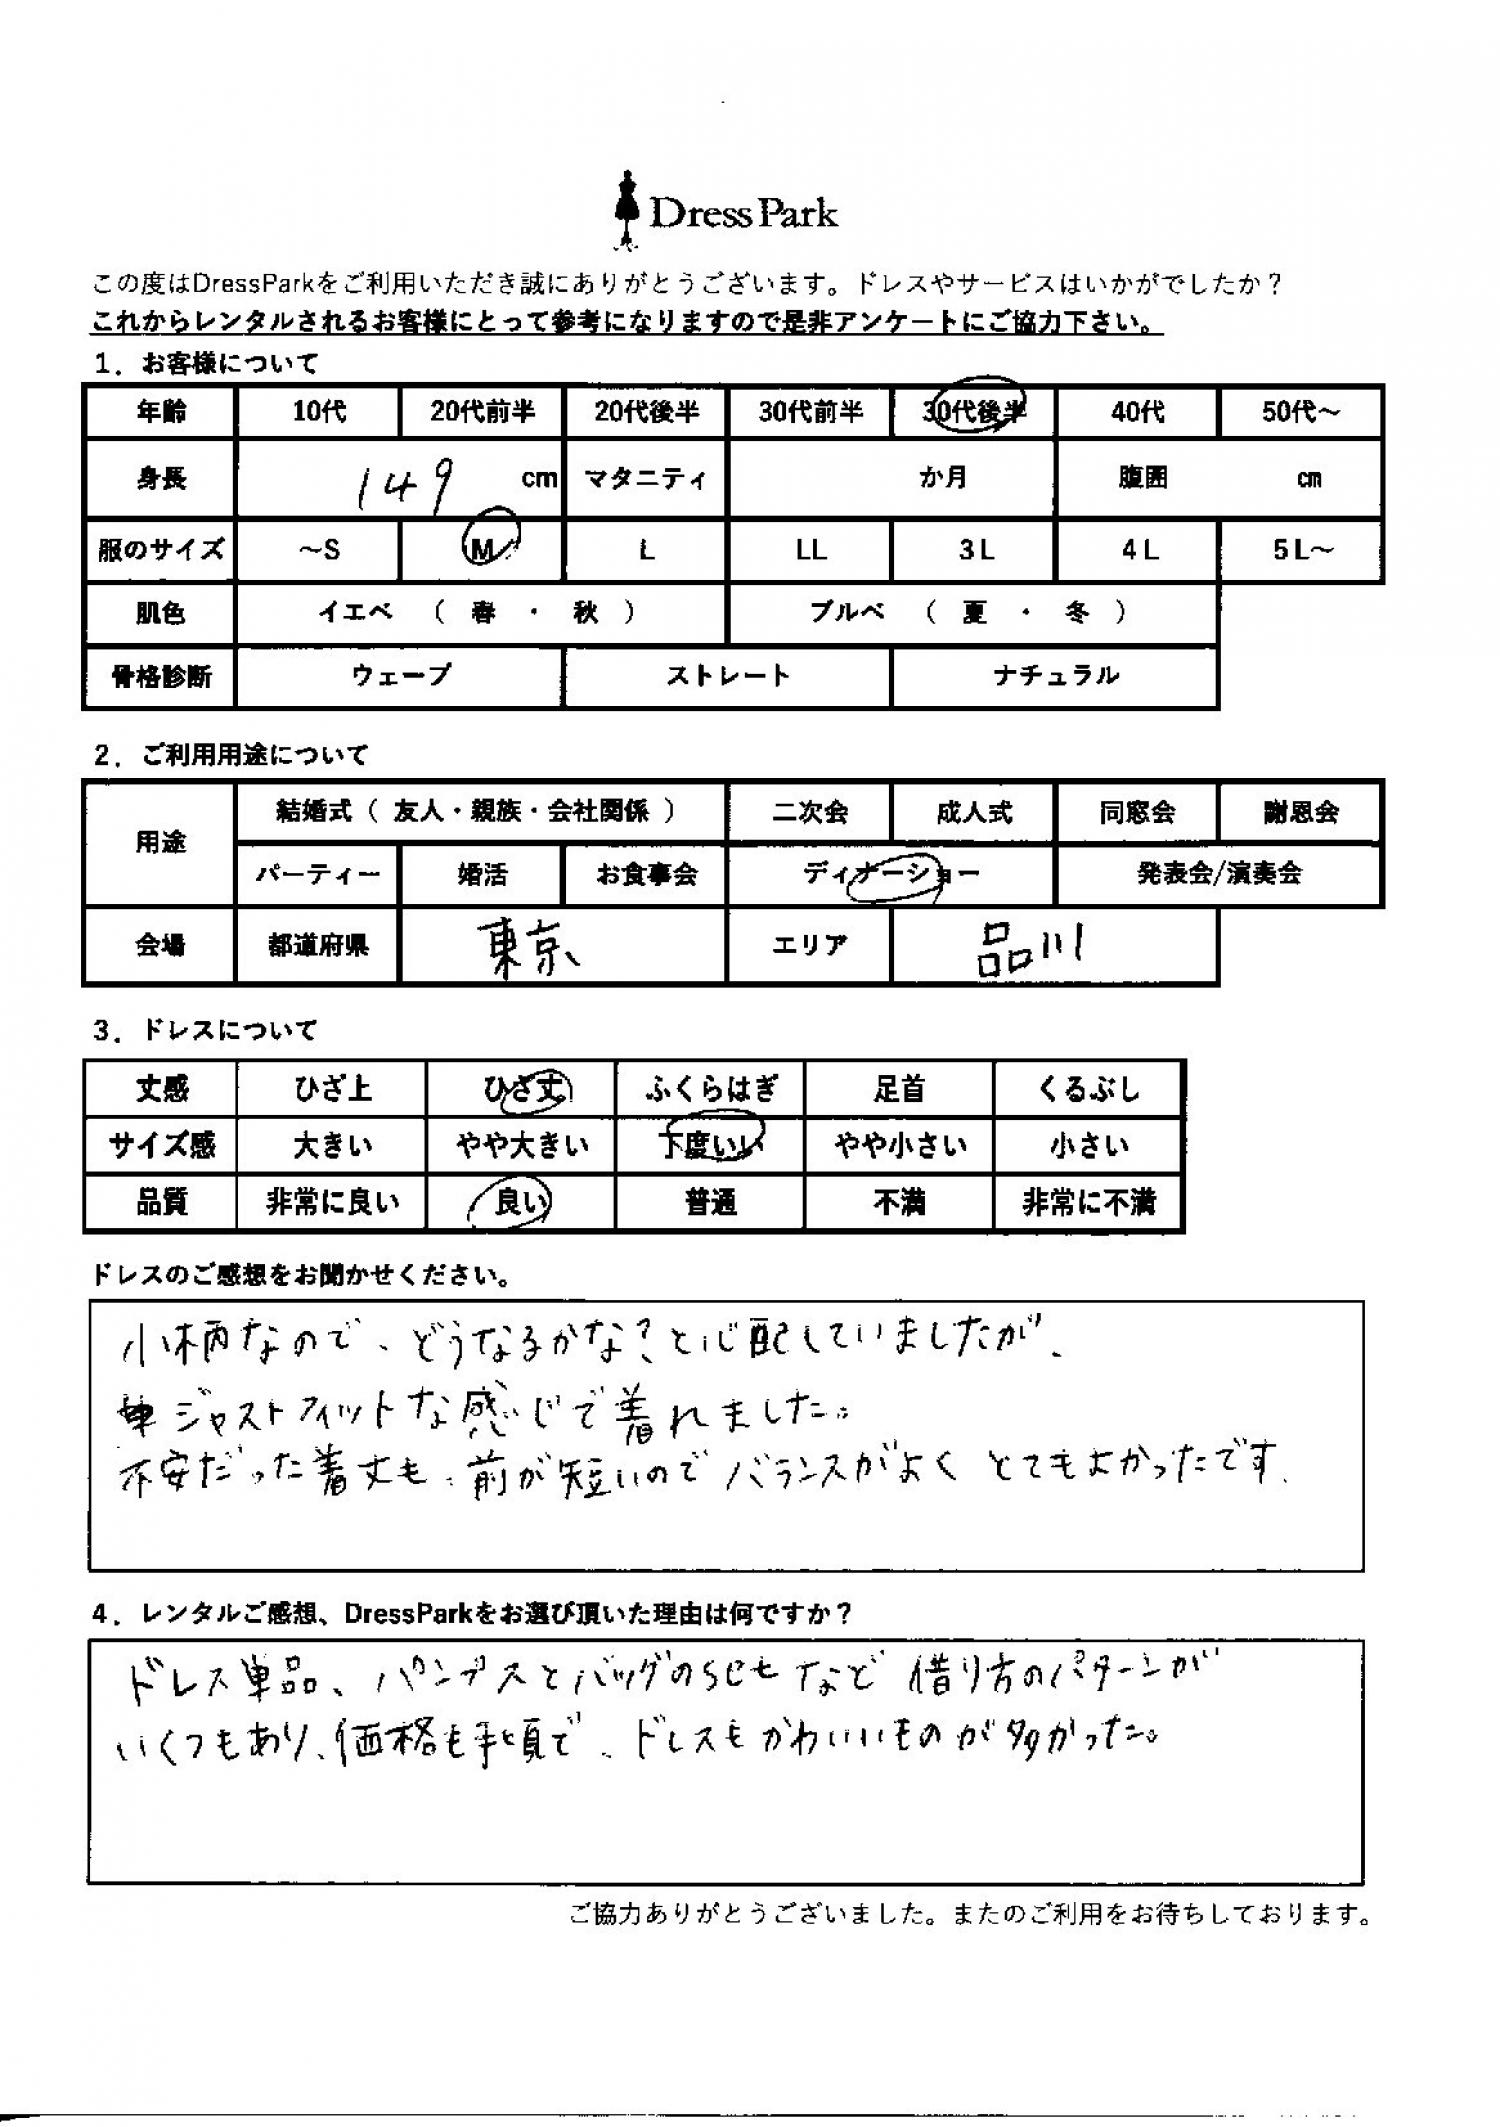 Dress Park
この度はDressParkをご利用いただき誠にありがとうございます。ドレスやサービスはいかがでしたか？
これからレンタルされるお客様にとって参考になりますので是非アンケートにご協力下さい。
1．お客様について
年齢 10代 20代前半 20代後半 30代前半 30代後半 40代 50代～
身長 149 cm マタニティ か月 腹囲 cm
服のサイズ ～S M L LL 3L 4L 5L～
肌色 イエベ （ 春 ・ 秋 ） ブルベ （ 夏 ・ 冬 ）
骨格診断 ウェーブ ストレート ナチュラル
2．ご利用用途について
用途 結婚式（ 友人・親族・会社関係 ） 二次会 成人式 同窓会 謝恩会
パーティー 婚活 お食事会 ディナーショー 発表会/演奏会
会場 都道府県 東京 エリア 品川
3．ドレスについて
丈感 ひざ上 ひざ丈 ふくらはぎ 足首 くるぶし
サイズ感 大きい やや大きい 丁度いい やや小さい 小さい
品質 非常に良い 良い 普通 不満 非常に不満
ドレスのご感想をお聞かせください。
小柄なので、どうなるかな？と心配していましたが、
ジャストフィットな感じで着れました。
不安だった着丈も、前が短いのでバランスがよく とてもよかったです。
4．レンタルご感想、DressParkをお選び頂いた理由は何ですか？
ドレス単品、パンプスとバッグのsetなど借り方のパターンが
いくつもあり、価格も手頃で、ドレスもかわいいものが多かった。
ご協力ありがとうございました。またのご利用をお待ちしております。